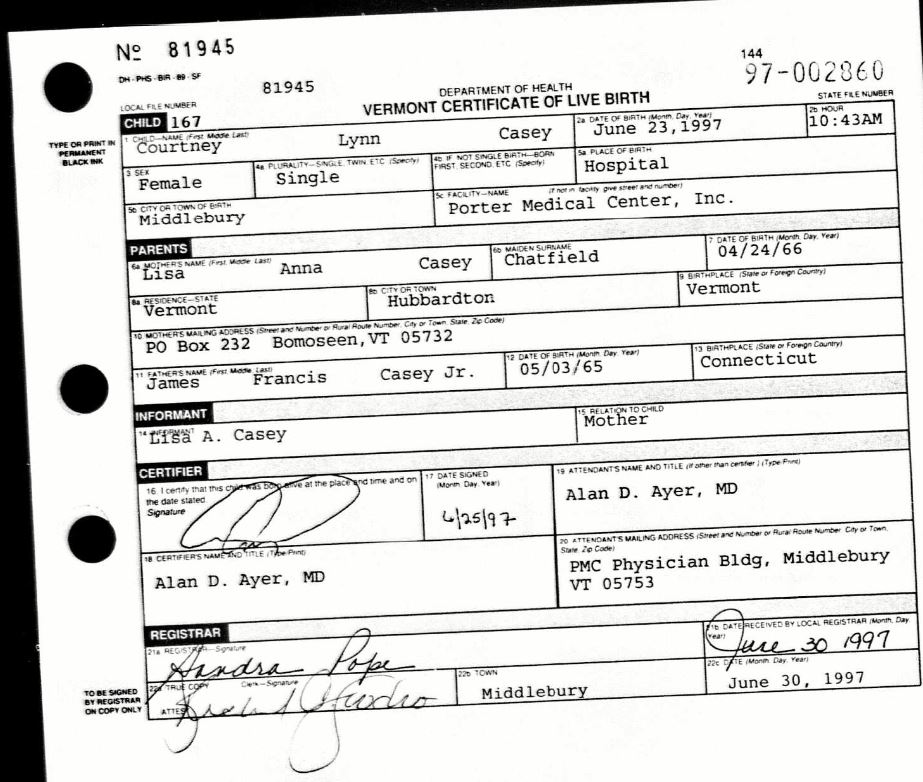 № 81945
DH - PHS - BIR - 89 - SF
81945
144
97-002860
LOCAL FILE NUMBER
DEPARTMENT OF HEALTH
STATE FILE NUMBER
VERMONT CERTIFICATE OF LIVE BIRTH
TYPE OR PRINT IN
PERMANENT
BLACK INK
CHILD 167
1 CHILD—NAME (First, Middle, Last)
Courtney Lynn Casey
2a DATE OF BIRTH (Month, Day, Year)
June 23,1997
2b HOUR
10:43AM
3 SEX
Female
4a PLURALITY—SINGLE, TWIN, ETC. (Specify)
Single
4b IF NOT SINGLE BIRTH—BORN
FIRST, SECOND, ETC. (Specify)
5a PLACE OF BIRTH
Hospital
5b CITY OR TOWN OF BIRTH
Middlebury
5c FACILITY—NAME (If not in facility, give street and number)
Porter Medical Center, Inc.
PARENTS
6a MOTHER'S NAME (First, Middle, Last)
Lisa Anna Casey
6b MAIDEN SURNAME
Chatfield
7 DATE OF BIRTH (Month, Day, Year)
04/24/66
8a RESIDENCE—STATE
Vermont
8b CITY OR TOWN
Hubbardton
9 BIRTHPLACE (State or Foreign Country)
Vermont
10 MOTHER'S MAILING ADDRESS (Street and Number or Rural Route Number, City or Town, State, Zip Code)
PO Box 232 Bomoseen,VT 05732
11 FATHER'S NAME (First, Middle, Last)
James Francis Casey Jr.
12 DATE OF BIRTH (Month, Day, Year)
05/03/65
13 BIRTHPLACE (State or Foreign Country)
Connecticut
INFORMANT
14 INFORMANT
Lisa A. Casey
15 RELATION TO CHILD
Mother
CERTIFIER
16. I certify that this child was born alive at the place and time and on
the date stated.
Signature
17 DATE SIGNED
(Month, Day, Year)
6/25/97
18 CERTIFIER'S NAME AND TITLE (Type/Print)
Alan D. Ayer, MD
19 ATTENDANT'S NAME AND TITLE (If other than certifier) (Type/Print)
Alan D. Ayer, MD
20 ATTENDANT'S MAILING ADDRESS (Street and Number or Rural Route Number, City or Town,
State, Zip Code)
PMC Physician Bldg, Middlebury
VT 05753
REGISTRAR
21a REGISTRAR—Signature
Sandra Pope
21b DATE RECEIVED BY LOCAL REGISTRAR (Month, Day,
Year)
June 30 1997
TO BE SIGNED
BY REGISTRAR
ON COPY ONLY
22a TRUE COPY Clerk—Signature
ATTEST
22b TOWN
Middlebury
22c DATE (Month, Day, Year)
June 30, 1997